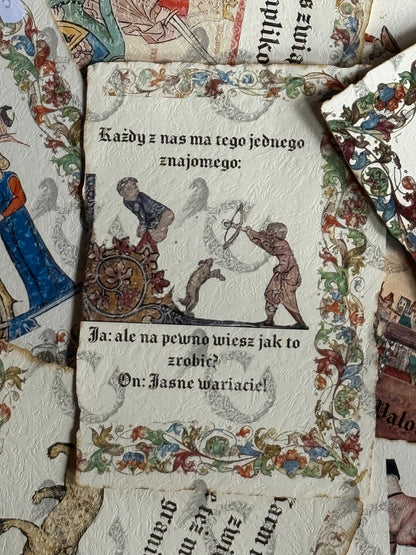 Każdy z nas ma tego jednego
znajomego:
Ja: ale na pewno wiesz jak to
zrobić?
On: Jasne wariacie!